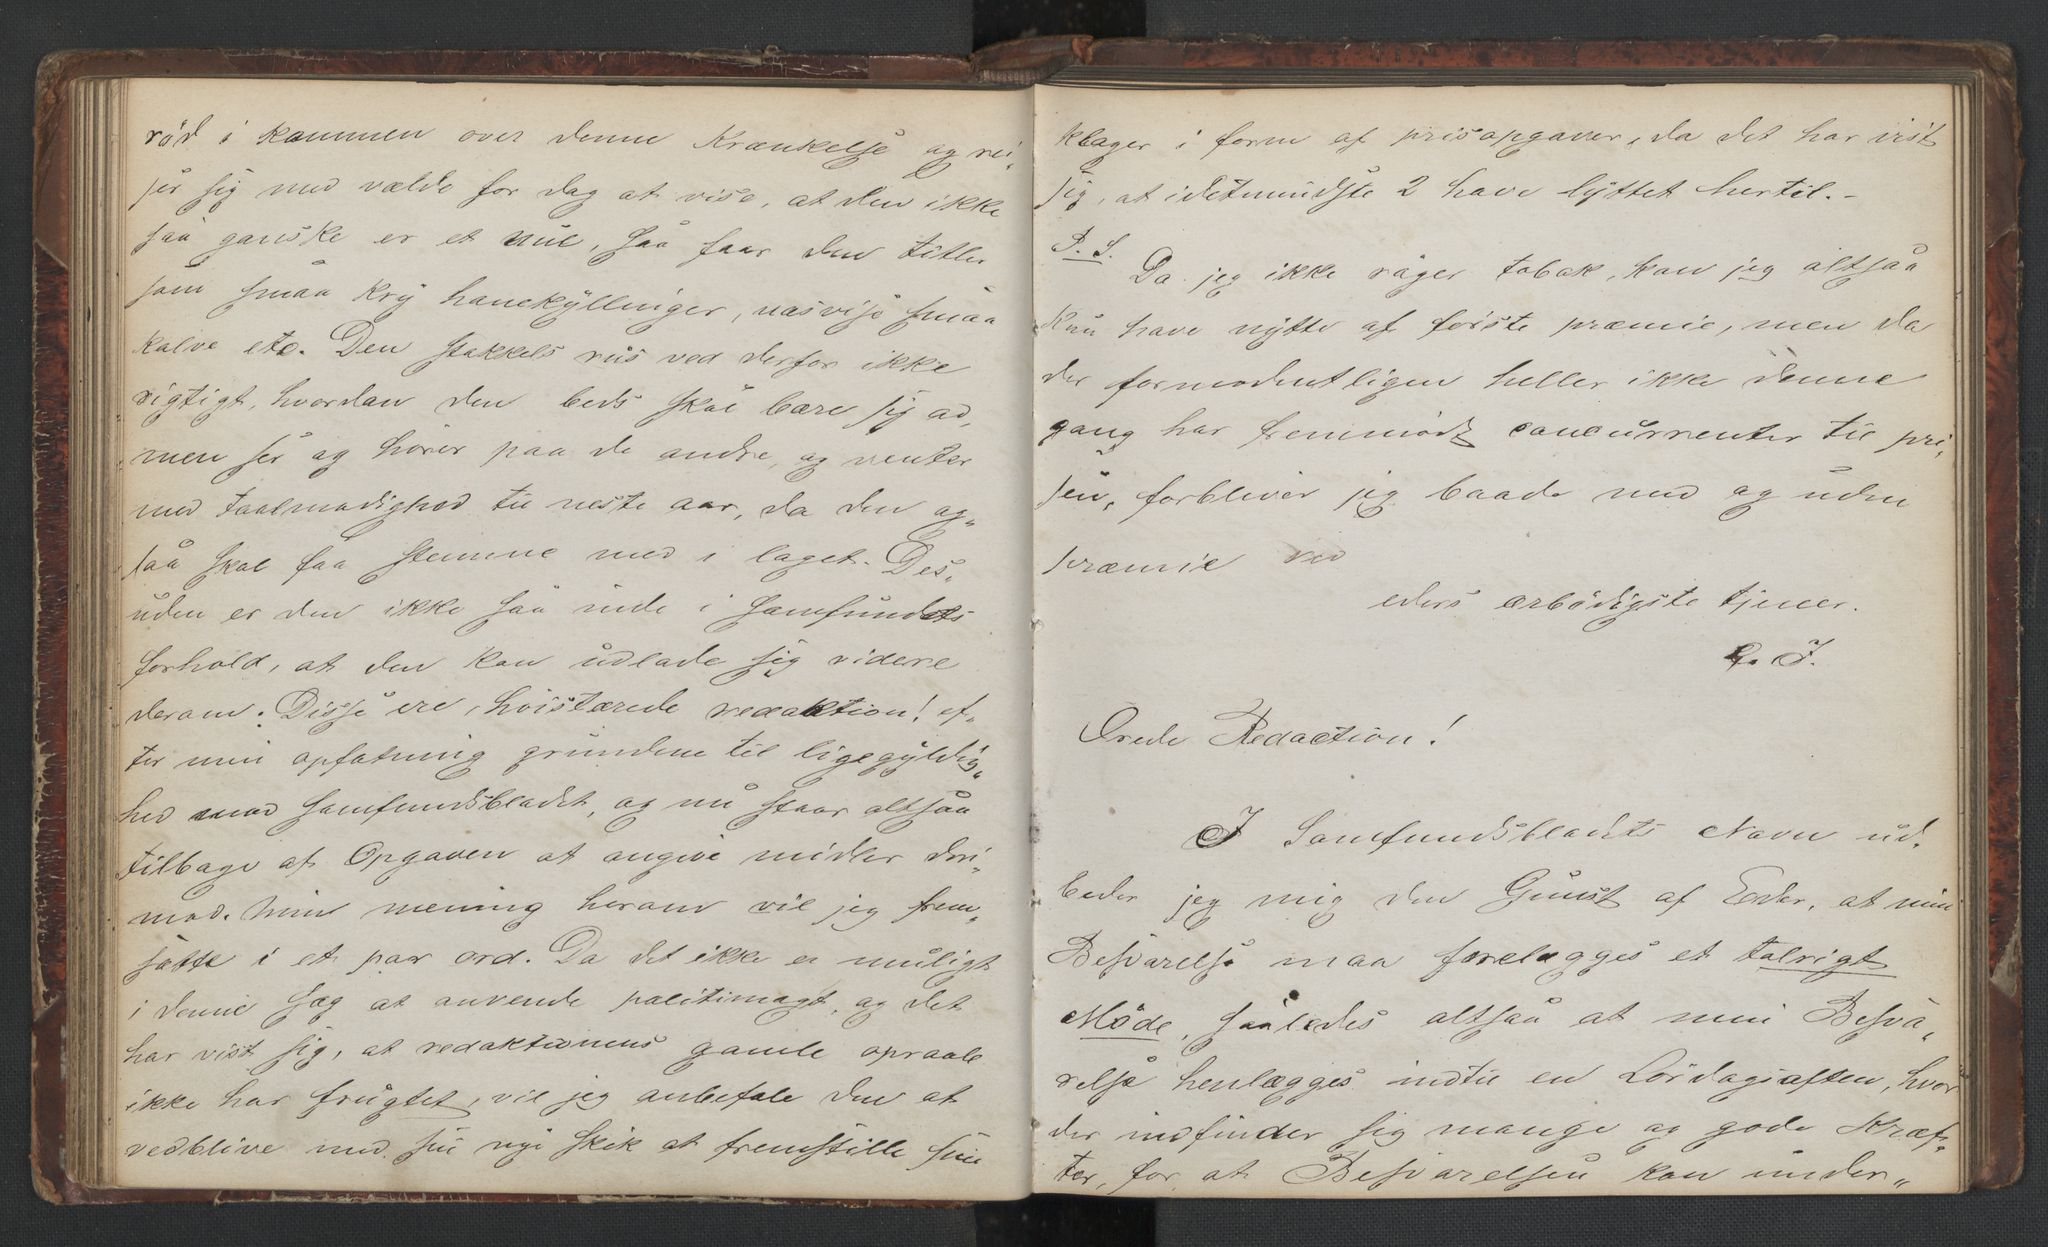 rød i kammen over denne Krænkelse og rei-
ser sig med vælde for dag at vise, at den ikke
saa ganske er et nul, saa faar den titler
som smaa kry hanekyllinger, næsvise smaa
kalve etc. Den stakkels rus ved derfor ikke
rigtigt, hvordan den beds skal bære sig ad,
men ser og hører paa de andre, og venter
med taalmodighed til neste aar, da den og-
saa skal faa stemme med i laget. Des-
uden er den ikke saa inde i samfundets
forhold, at den kan udlade sig videre
derom. Disse ere, høistærede redaktion! ef-
ter min opfatning grundene til ligegyldig-
hed mod samfundsbladet, og nu staar altsaa
tilbage at Opgaven at angive midler deri-
mod. Min mening herom vil jeg frem-
sætte i et par ord. Da det ikke er muligt
i denne sag at anvende politimagt, og det
har vist sig, at redaktionens gamle opraab
ikke har frugtet, vil jeg anbefale den at
vedblive med sin nye skik at fremstille sine
klager i form af prisopgaver, da det har vist
sig, at idetmindste 2 have lyttet hertil.-
P. S.
Da jeg ikke røger tobak, kan jeg altsaa
kun have nytte af første præmie, men da
der formodentligen heller ikke denne
gang har fremmødt concurrenter til pri-
sen, forbliver jeg baade med og uden
præmie ved
eders ærbødigste tjener.
J.
Ærede Redaction!
I Samfundsbladets Navn ud-
beder jeg mig den Gunst af Eder, at min
Besvarelse maa forelægges et talrigt
Møde, saaledes altsaa at min Besva-
relse henlægges indtil en Lørdagsaften, hvor
der indfinder sig mange og gode Kræf-
ter, for at Besvarelsen kan under-